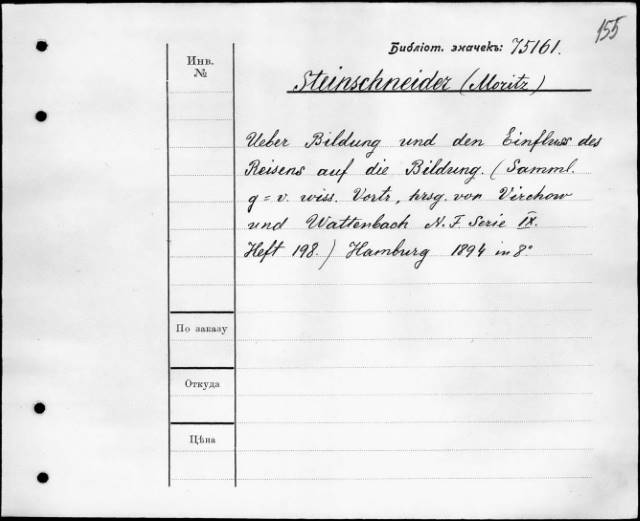 155
Библіот. значекъ: 75161.
Инв.
№
Steinschneider (Moritz)
Ueber Bildung und den Einfluss des
Reisens auf die Bildung. (Samml.
g=v. wiss. Vortr, hrsg. von Virchow
und Wattenbach N. F. Serie IX.
Heft 198.) Hamburg 1894 in 8°
По заказу
Откуда
Цѣна